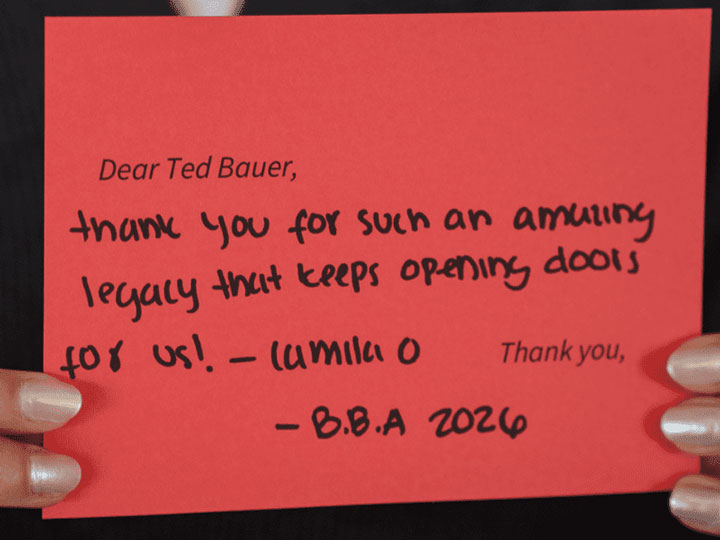 Dear Ted Bauer,
thank you for such an amazing
legacy that keeps opening doors
for us! – Camila O
Thank you,
– B.B.A 2026